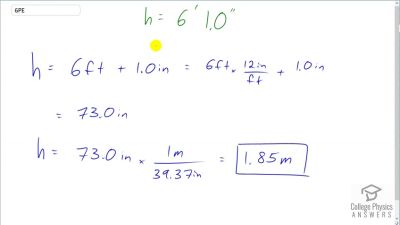 6PE
h = 6' 1.0"
h = 6ft + 1.0in = 6ft × 12in/ft + 1.0in
= 73.0in
h = 73.0in × 1m/39.37in = 1.85m
College Physics
ANSWERS